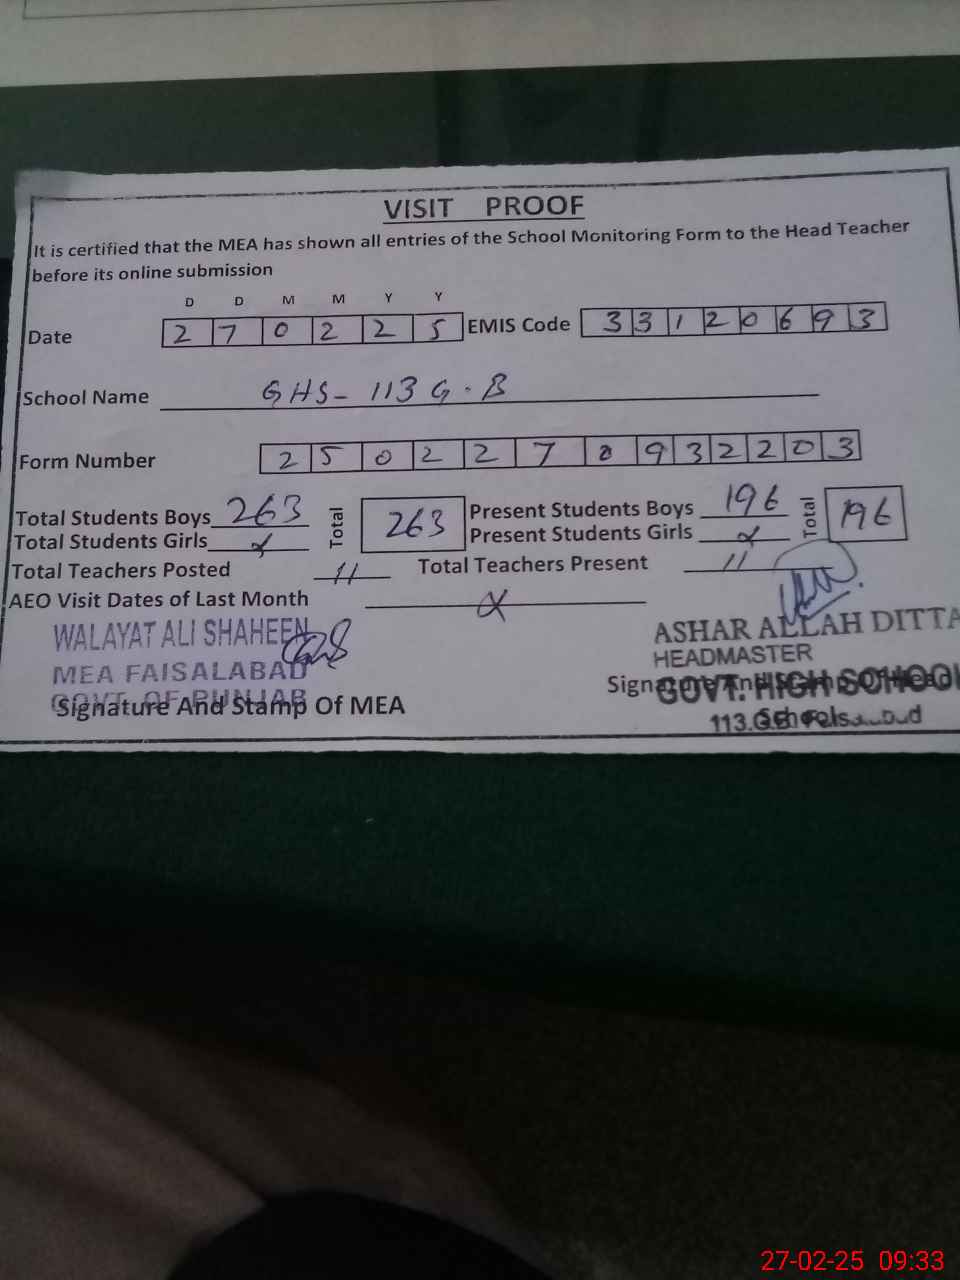 VISIT PROOF
It is certified that the MEA has shown all entries of the School Monitoring Form to the Head Teacher
before its online submission
D D M M Y Y
Date 2 7 0 2 2 5 EMIS Code 3 3 1 2 0 6 9 3
School Name GHS- 113 G.B
Form Number 2 5 0 2 2 7 0 9 3 2 2 0 3
Total Students Boys 263 Total 263 Present Students Boys 196 Total 196
Total Students Girls Present Students Girls
Total Teachers Posted 11 Total Teachers Present 11
AEO Visit Dates of Last Month
WALAYAT ALI SHAHEEN
MEA FAISALABAD
GOVT. OF PUNJAB
Signature And Stamp Of MEA
ASHAR ALLAH DITTA
HEADMASTER
GOVT. HIGH SCHOOL
113.G.B
27-02-25 09:33